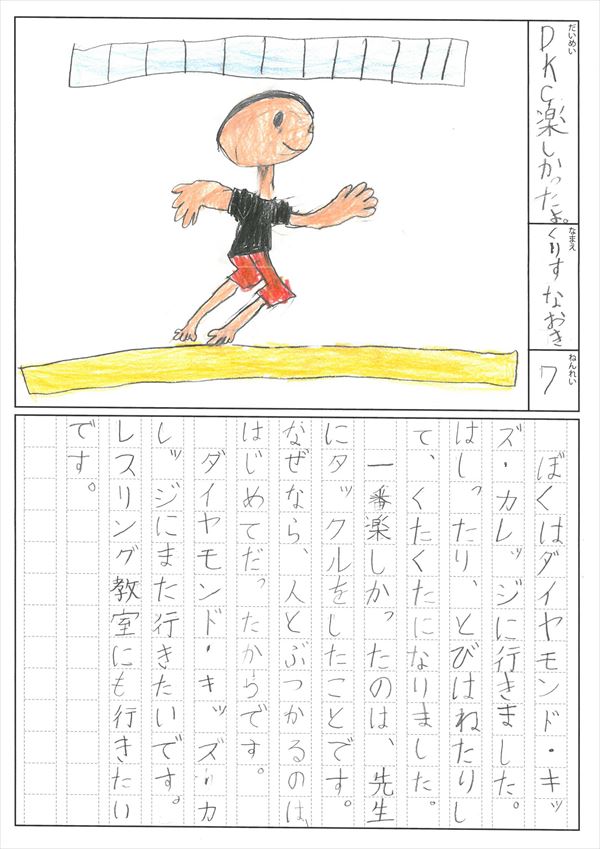 だいめい
DKC楽しかったよ。
なまえ
くりすなおき
ねんれい
7
ぼくはダイヤモンド・キッ
ズ・カレッジに行きました。
はしったり、とびはねたりし
て、くたくたになりました。
一番楽しかったのは、先生
にタックルをしたことです。
なぜなら、人とぶつかるのは、
はじめてだったからです。
ダイヤモンド・キッズ・カ
レッジにまた行きたいです。
レスリング教室にも行きたい
です。